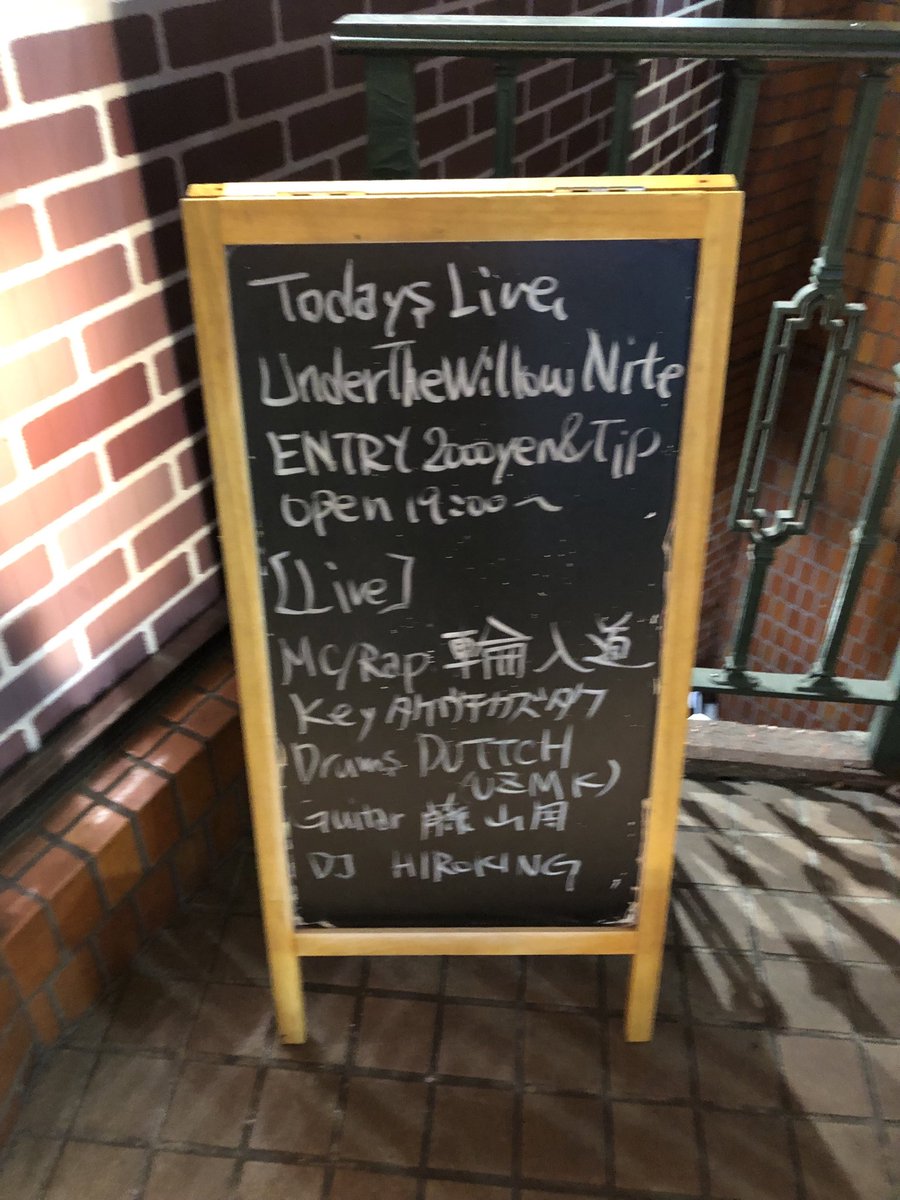 Todays Live,
UnderTheWillow Nite
ENTRY 2000yen&Tip
open 19:00〜
[Live]
MC/Rap 輪入道
Key タケウチカズタケ
Drums DUTTCH
(UZMK)
Guitar 藤山周
DJ HIROKING